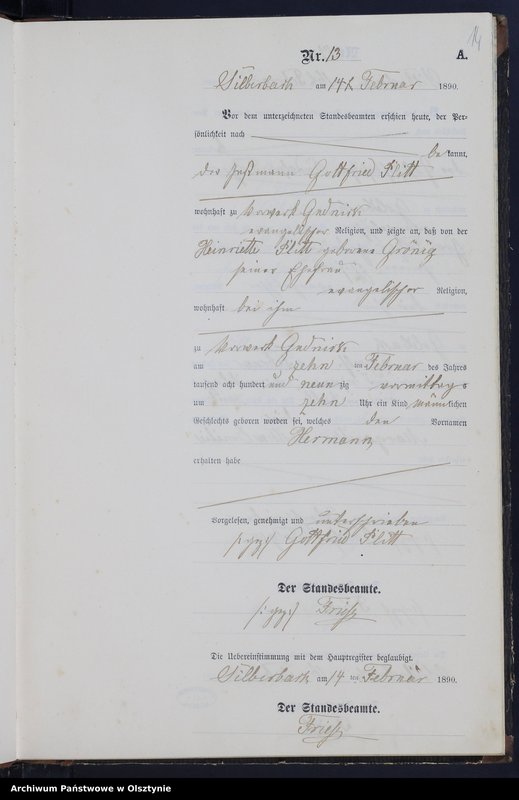 14
Nr. 13 A.
Silberbach am 14 Februar 1890.
Vor dem unterzeichneten Standesbeamten erschien heute, der Per-
sönlichkeit nach
bekannt,
der Instmann Gottfried Flitt
wohnhaft zu Vorwerk Gudnick
evangelischer Religion, und zeigte an, daß von der
Henriette Flitt geborene Grönig
seiner Ehefrau
evangelischer Religion,
wohnhaft bei ihm
zu Vorwerk Gudnick
am zehn ten Februar des Jahres
tausend acht hundert und neun zig vormittags
um zehn Uhr ein Kind männlichen
Geschlechts geboren worden sei, welches den Vornamen
Hermann
erhalten habe
Vorgelesen, genehmigt und unterschrieben
/: gez:/ Gottfried Flitt
Der Standesbeamte.
/: gez:/
Die Uebereinstimmung mit dem Hauptregister beglaubigt.
Silberbach am 14 ten Februar 1890.
Der Standesbeamte.
Archiwum Państwowe w Olsztynie